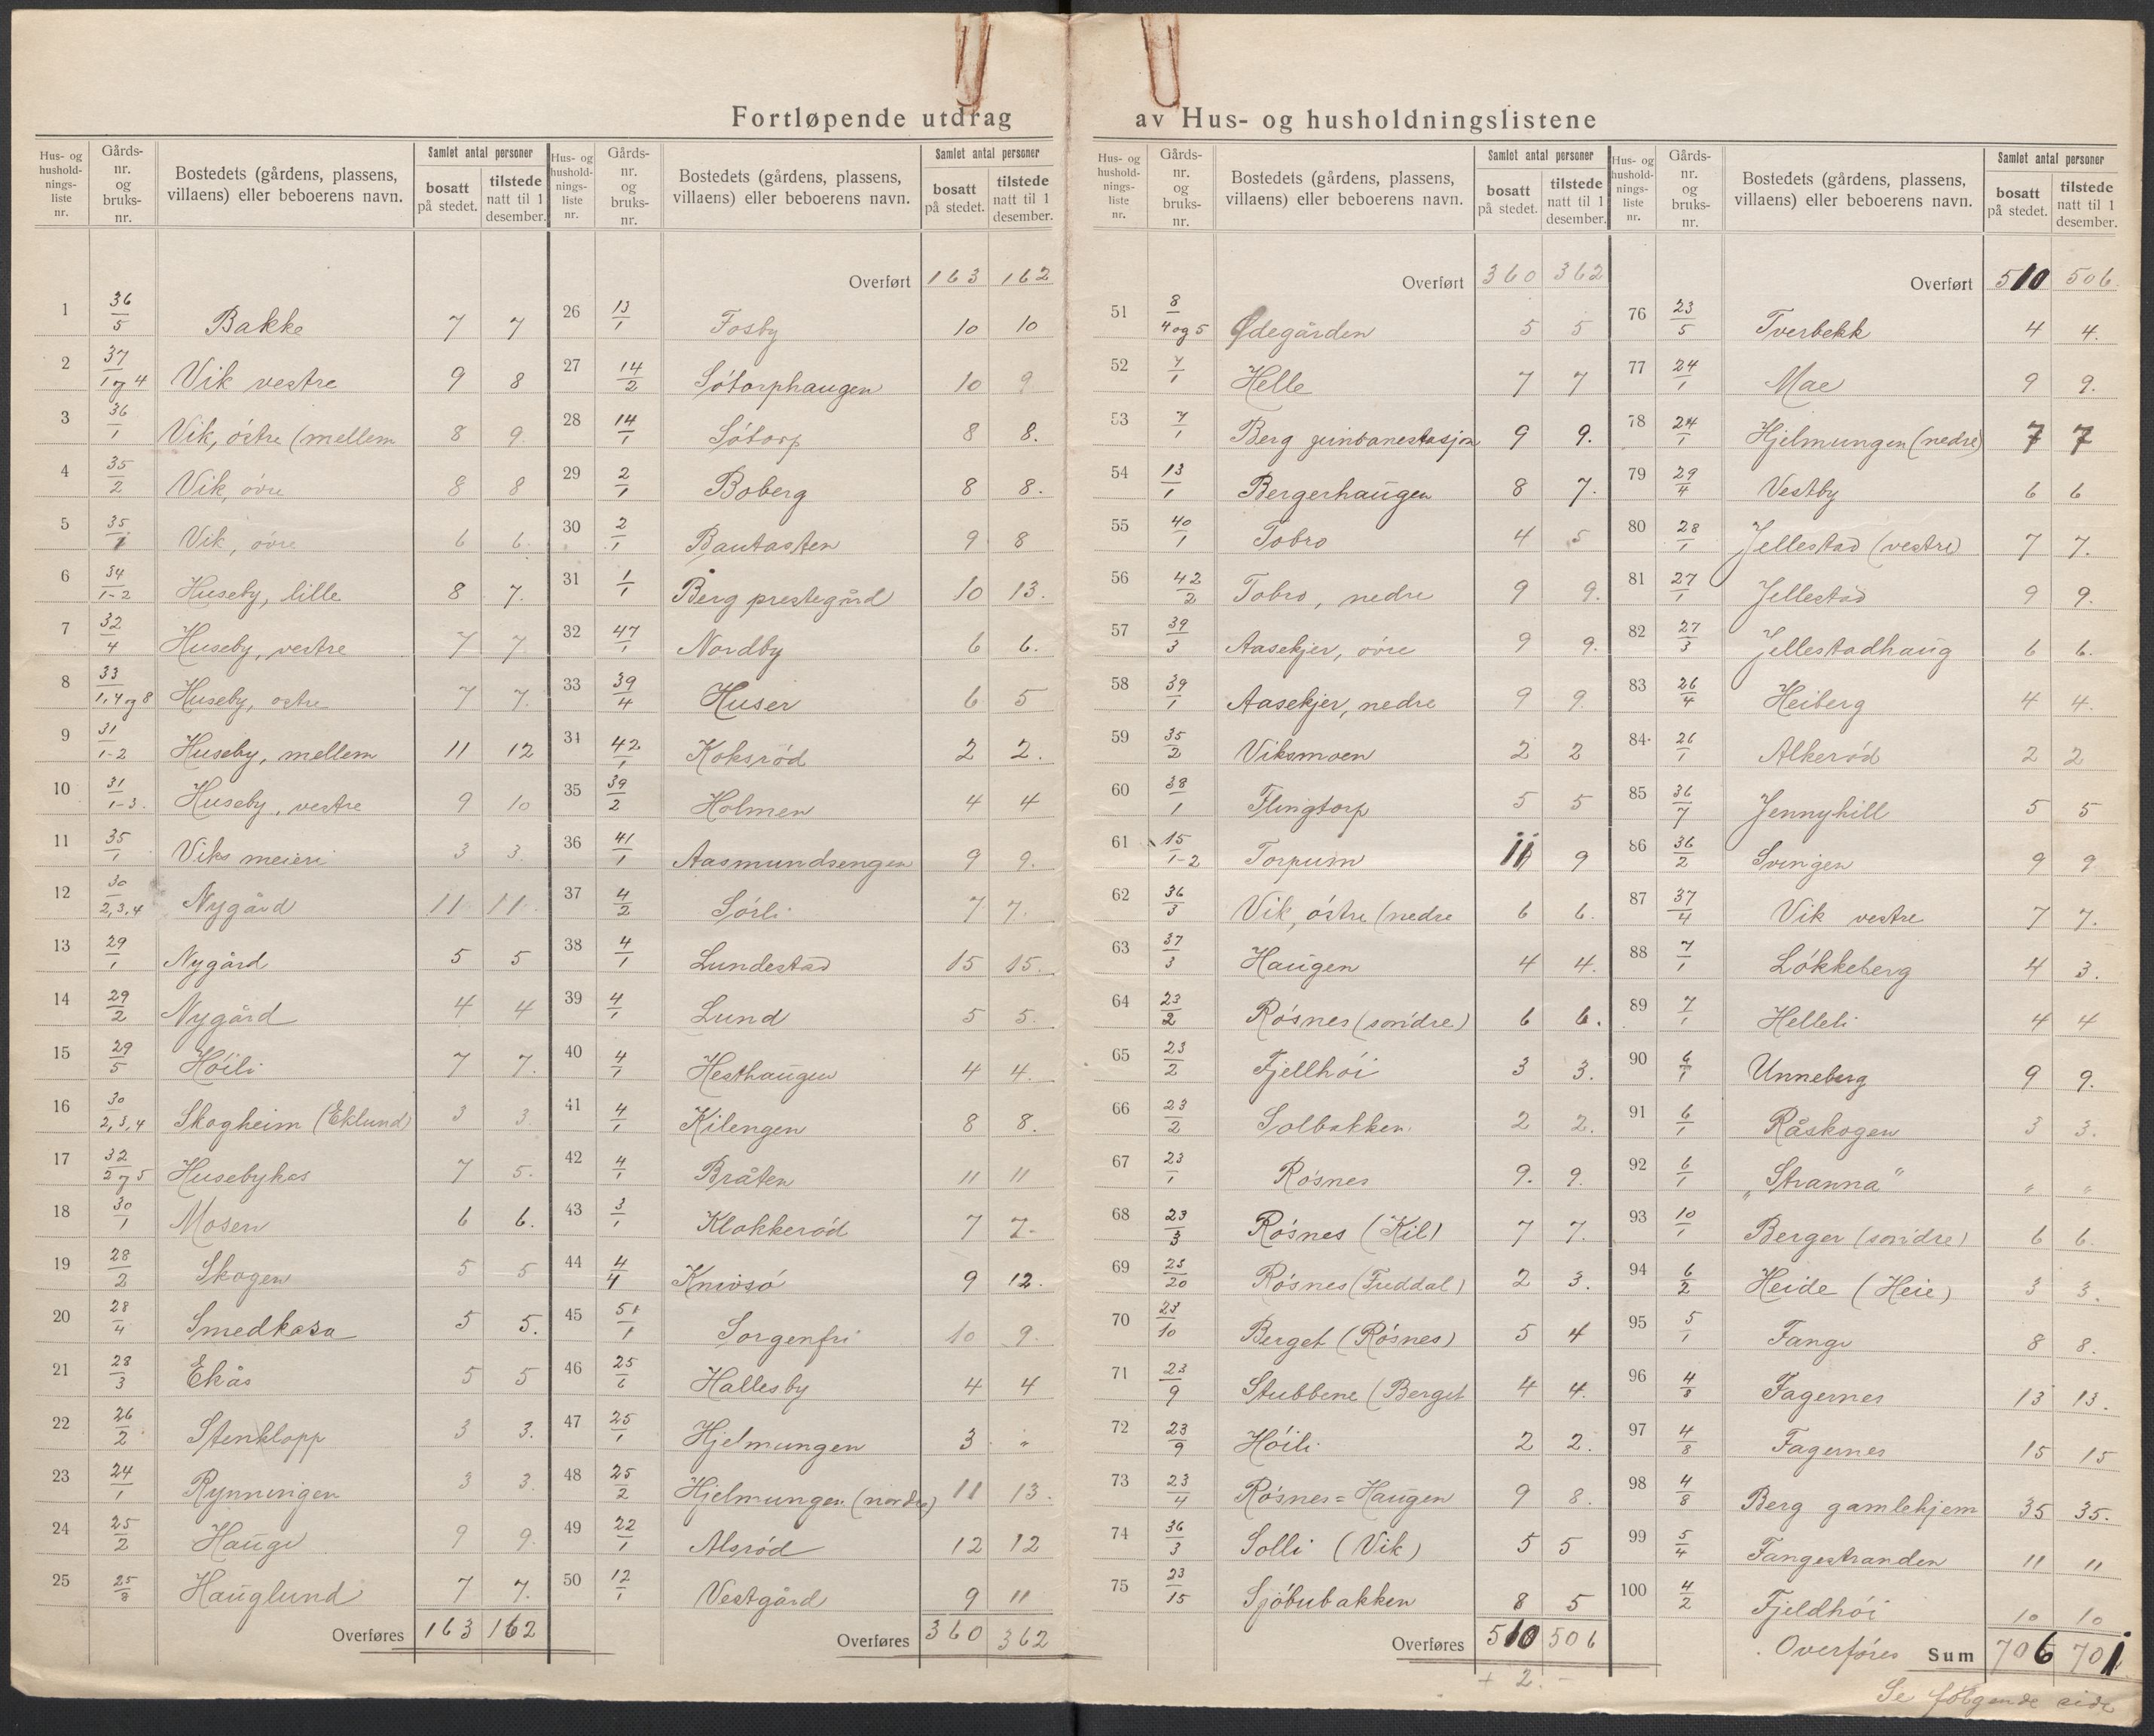 Fortløpende utdrag av Hus- og husholdningslistene
Hus- og hushold-nings-liste nr. | Gårds-nr. og bruks-nr. | Bostedets (gårdens, plassens, villaens) eller beboerens navn. | Samlet antal personer | bosatt på stedet. | tilstede natt til 1 desember.
1 36/5 Bakke 7 7
2 37/1 og 4 Vik vestre 9 8
3 36/1 Vik, östre (mellem 8 9
4 35/2 Vik, övre 8 8
5 35/1 Vik, övre 6 6
6 34/1-2 Huseby, lille 8 7.
7 32/4 Huseby, vestre 7 7
8 33/1,4 og 8 Huseby, östre 7 7
9 31/1-2 Huseby, mellem 11 12
10 31/1-3. Huseby, vestre 9 10
11 35/1 Viks meieri 3 3.
12 30/2,3,4 Nygård 11 11
13 29/1 Nygård 5 5
14 29/2 Nygård 4 4
15 29/5 Höili 7 7.
16 30/2,3,4 Skogheim (Eklund) 3 3.
17 32/2 og 5 Husebykas 7 5.
18 30/1 Mosen 6 6.
19 28/2 Skogen 5 5
20 28/4 Smedkasa 5 5.
21 28/3 Ekås 5 5
22 26/2 Stenklopp 3 3.
23 24/1 Rynningen 3 3.
24 25/2 Hauge 9 9.
25 Hauglund 7 7.
Overføres 163 162
Hus- og hushold-nings-liste nr. | Gårds-nr. og bruks-nr. | Bostedets (gårdens, plassens, villaens) eller beboerens navn. | Samlet antal personer | bosatt på stedet. | tilstede natt til 1 desember.
Overført 163 162
26 13/1 Fosby 10 10
27 14/2 Sötorphaugen 10 9
28 14/1 Sötorp 8 8.
29 2/1 Boberg 8 8.
30 2/1 Bautasten 9 8
31 1/1 Berg prestegård 10 13.
32 47/1 Nordby 6 6.
33 39/4 Huser 6 5
34 42/1 Koksröd 2 2.
35 39/2 Holmen 4 4
36 41/1 Aasmundsengen 9 9.
37 4/2 Sörli 7 7.
38 4/1 Lundestad 15 15.
39 4/1 Lund 5 5.
40 4/1 Hesthaugen 4 4.
41 4/1 Kilengen 8 8.
42 4/1 Bråten 11 11
43 3/1 Klokkeröd 7 7.
44 4/4 Knivsö 9 12.
45 51/1 Sorgenfri 10 9.
46 25/6 Hallesby 4 4
47 25/1 Hjelmungen 3 "
48 25/2 Hjelmungen (nordre) 11 13.
49 22/1 Alsröd 12 12
50 12/1 Vestgård 9 11
Overføres 360 362
Hus- og hushold-nings-liste nr. | Gårds-nr. og bruks-nr. | Bostedets (gårdens, plassens, villaens) eller beboerens navn. | Samlet antal personer | bosatt på stedet. | tilstede natt til 1 desember.
Overført 360 362
51 8/4 og 5 Ødegården 5 5
52 7/1 Helle 7 7
53 7/1 Berg jernbanestasjon 9 9.
54 13/1 Bergerhaugen 8 7.
55 40/1 Tobro 4 5
56 42/2 Tobro, nedre 9 9.
57 39/3 Aasekjer, övre 9 9.
58 39/1 Aasekjer, nedre 9 9.
59 35/2 Viksmoen 2 2
60 38/1 Flingtorp 5 5
61 15/1-2 Torpum 11 9
62 36/3 Vik, östre (nedre 6 6.
63 37/3 Haugen 4 4.
64 23/2 Rösnes (söndre) 6 6.
65 23/2 Fjellhöi 3 3.
66 23/2 Solbakken 2 2.
67 23/1 Rösnes 9. 9.
68 23/3 Rösnes (Kil) 7 7.
69 23/20 Rösnes (Freddal) 2 3.
70 23/10 Berget (Rösnes) 5 4
71 23/9 Stubbene (Berget 4 4.
72 23/9 Höili 2 2.
73 23/4 Rösnes=Haugen 9 8.
74 36/3 Solli (Vik) 5 5
75 23/15 Sjöbubakken 8 5
Overføres 510 506
+ 2. -
Hus- og hushold-nings-liste nr. | Gårds-nr. og bruks-nr. | Bostedets (gårdens, plassens, villaens) eller beboerens navn. | Samlet antal personer | bosatt på stedet. | tilstede natt til 1 desember.
Overført 510 506.
76 23/5 Tverbekk 4 4.
77 24/1 Mae 9 9.
78 24/1 Hjelmungen (nedre) 7 7
79 29/4 Vestby 6 6
80 28/1 Jellestad (vestre) 7 7.
81 27/1 Jellestad 9 9.
82 27/3 Jellestadhaug 6 6.
83 26/4 Heiberg 4 4.
84 26/1 Alkeröd 2 2
85 36/7 Jennyhill 5 5
86 36/2 Svingen 9 9
87 37/4 Vik vestre 7 7.
88 7/1 Lökkeberg 4 3.
89 7/1 Helleli 4 4
90 6/1 Unneberg 9 9.
91 6/1 Råskogen 3 3.
92 6/1 „Stranna" " "
93 10/1 Berger (söndre) 6 6.
94 6/2 Heide (Heie) 3 3.
95 5/1 Fange 8 8.
96 4/8 Fagernes 13 13.
97 4/8 Fagernes 15 15
98 4/8 Berg gamlehjem 35 35.
99 5/4 Fangestranden 11 11
100 4/2 Fjeldhöi 10 10
Overföres Sum 706 701
Se følgende side